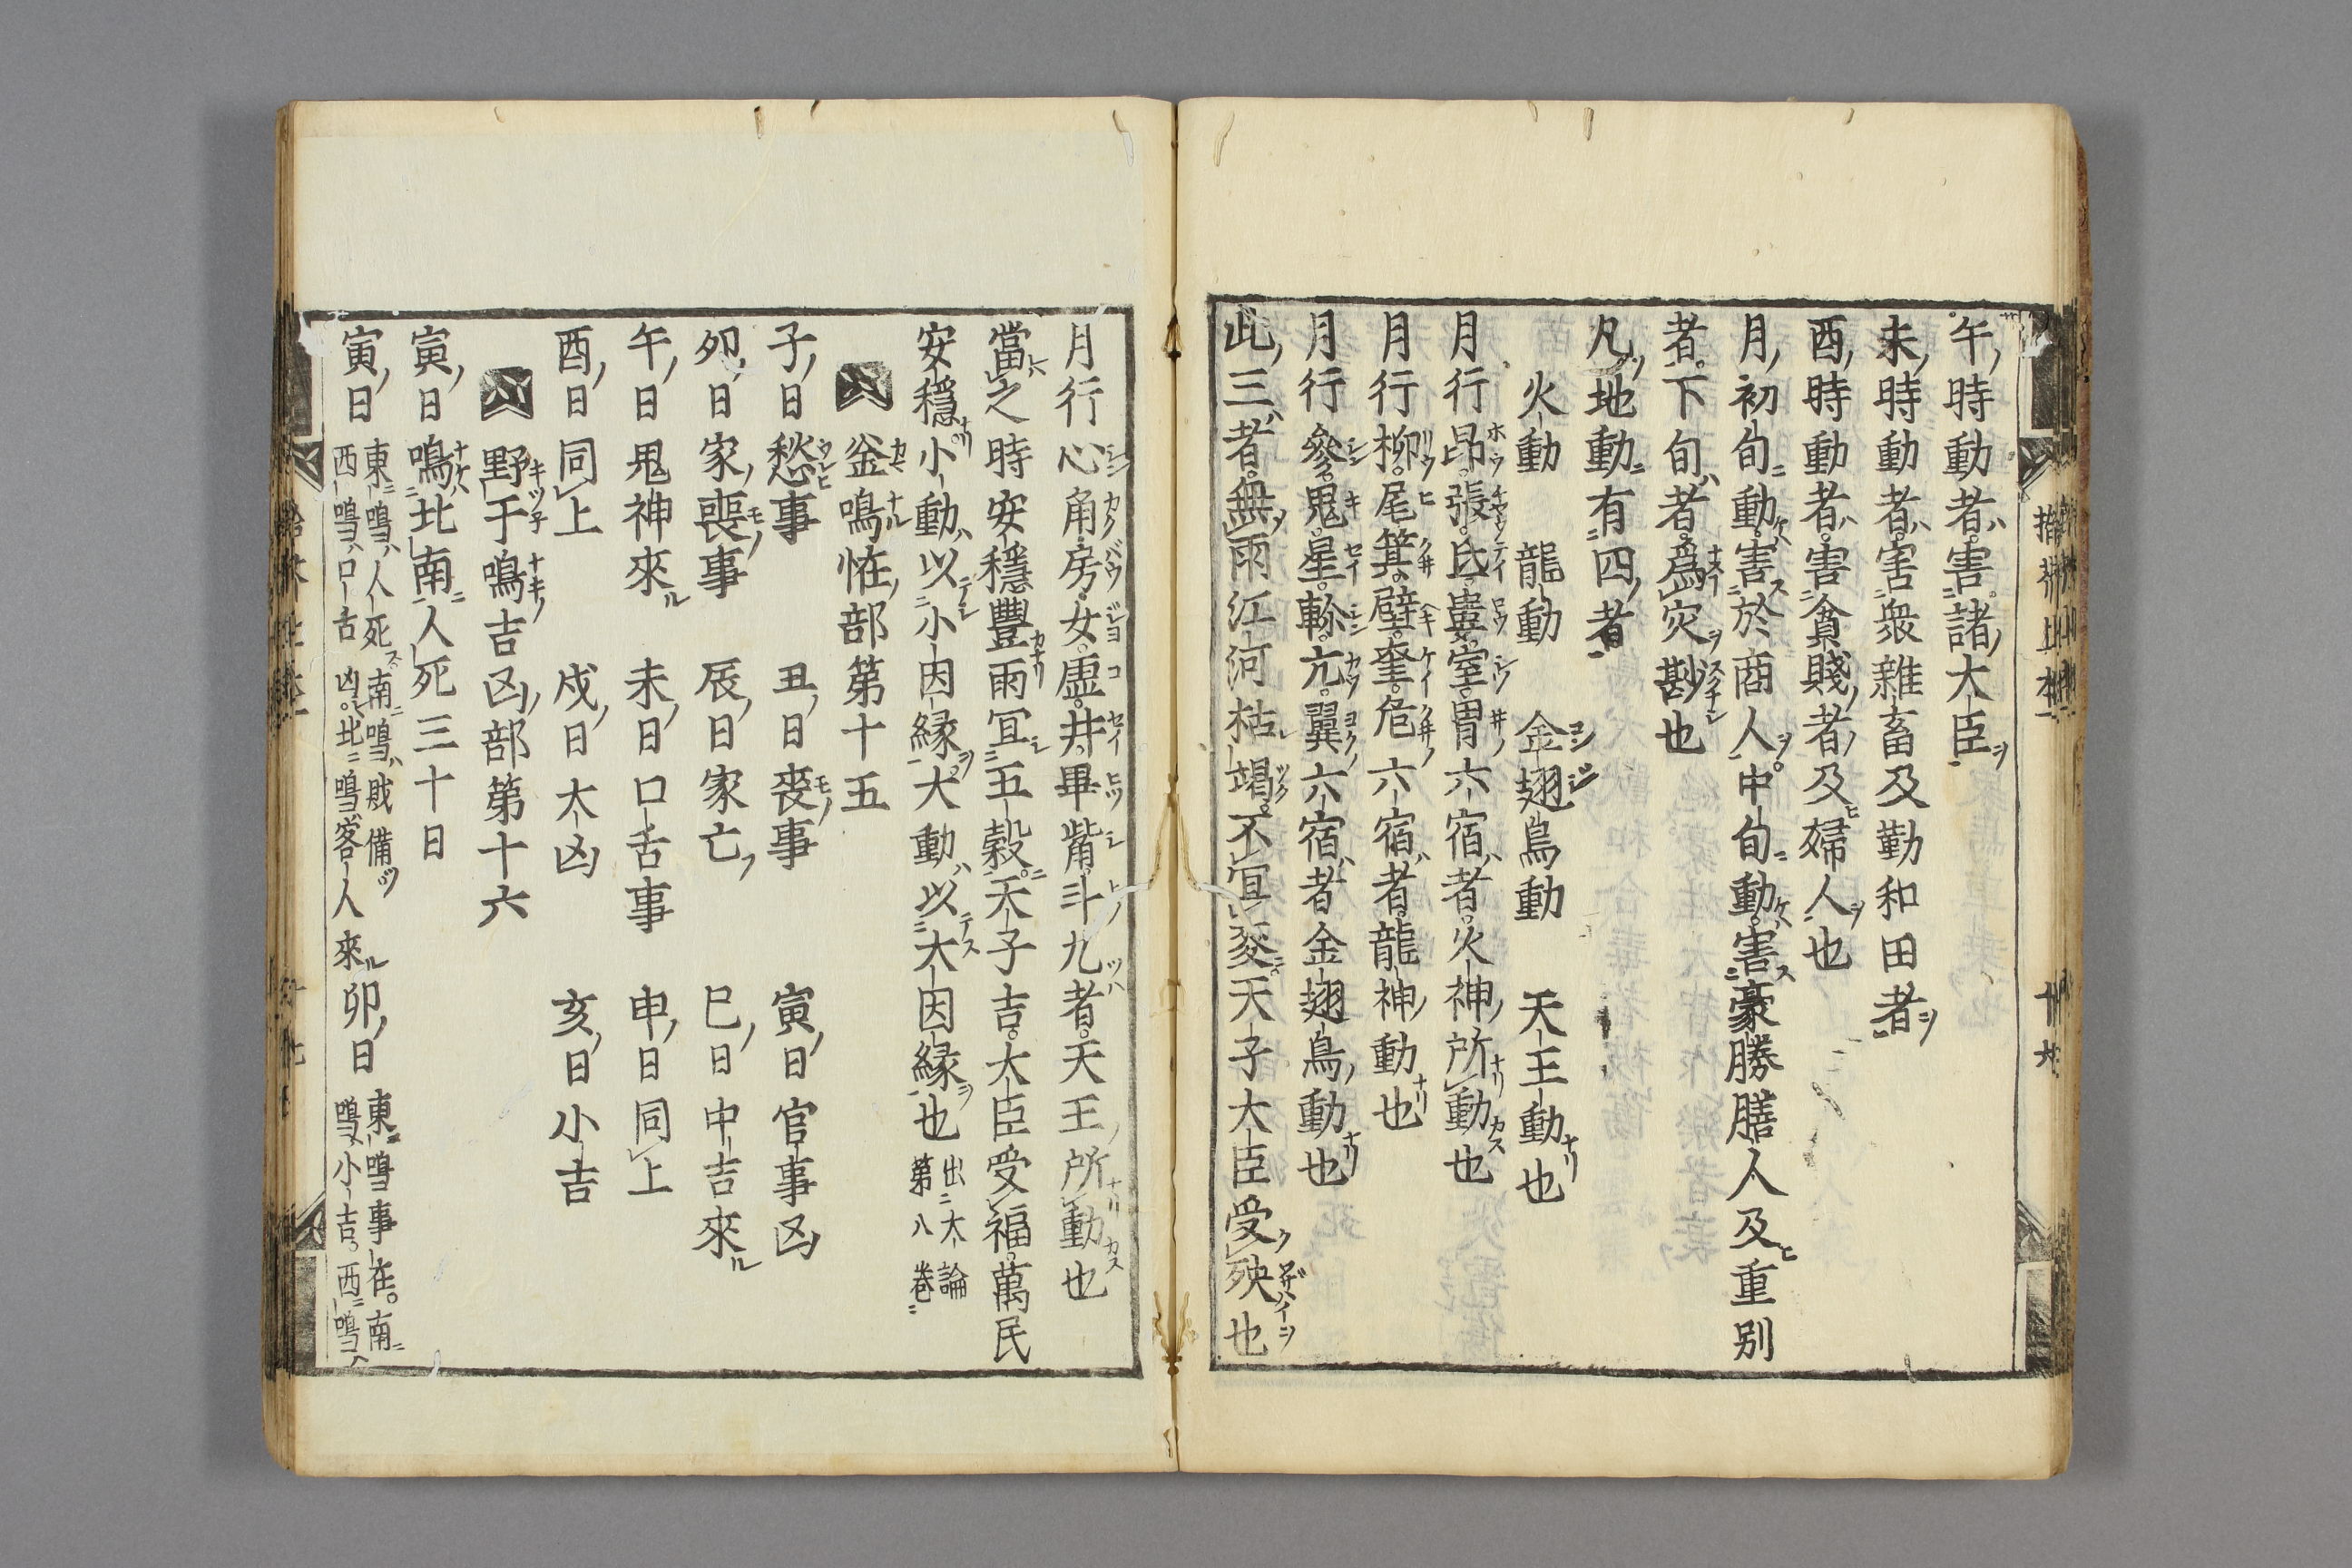 午時動者害諸大臣
未時動者害衆雜畜及勤和田者
酉時動者害貪賤者及婦人也
月初旬動害於商人中旬動害豪勝膳人及重別
者下旬者爲灾尠也
凡地動有四者
火動 龍動 金翅鳥動 天王動也
月行昴張氐婁室胃六宿者火神所動也
月行柳尾箕壁奎危六宿者龍神動也
月行參鬼星軫亢翼六宿者金翅鳥動也
此三者無雨江河枯竭不宜麥天子大臣受殃也
月行心角房女虚井畢觜斗九者天王所動也
當之時安穩豐雨冝五穀天子吉大臣受福萬民
安穩小動以小因縁大動以大因縁也 出大論
第八卷
釜鳴恠部第十五
子日愁事 丑日喪事 寅日官事凶
卯日家喪事 辰日家亡 巳日中吉來
午日鬼神來 未日口舌事 申日同上
酉日同上 戌日大凶 亥日小吉
野干鳴吉凶部第十六
寅日鳴北南人死三十日
寅日 東鳴人死南鳴賊備
西鳴口舌凶北鳴客人來 卯日 東鳴事在南
鳴小吉西鳴